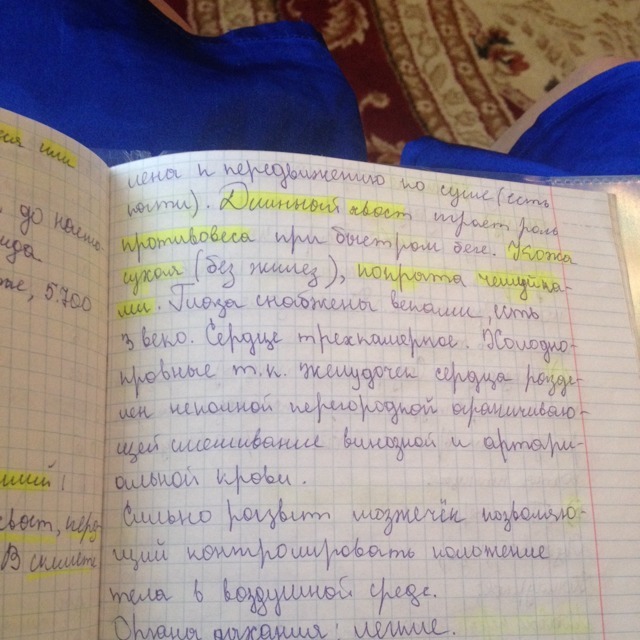 лены к передвижению по суше (есть
ногти). Длинный хвост играет роль
противовеса при быстром беге. Кожа
сухая (без желез), покрыта чешуйка-
ми. Глаза снабжены веками, есть
3 веко. Сердце трехкамерное. Холодно-
кровные т.к. желудочек сердца разде-
лен неполной перегородкой ограничиваю-
щей смешивание винозной и артари-
альной крови.
Сильно развит мозжечёк позволяю-
щий контролировать положение
тела в воздушной среде.
Органы дыхания: легкие.
до насто
5.700
хвост,
В скелете